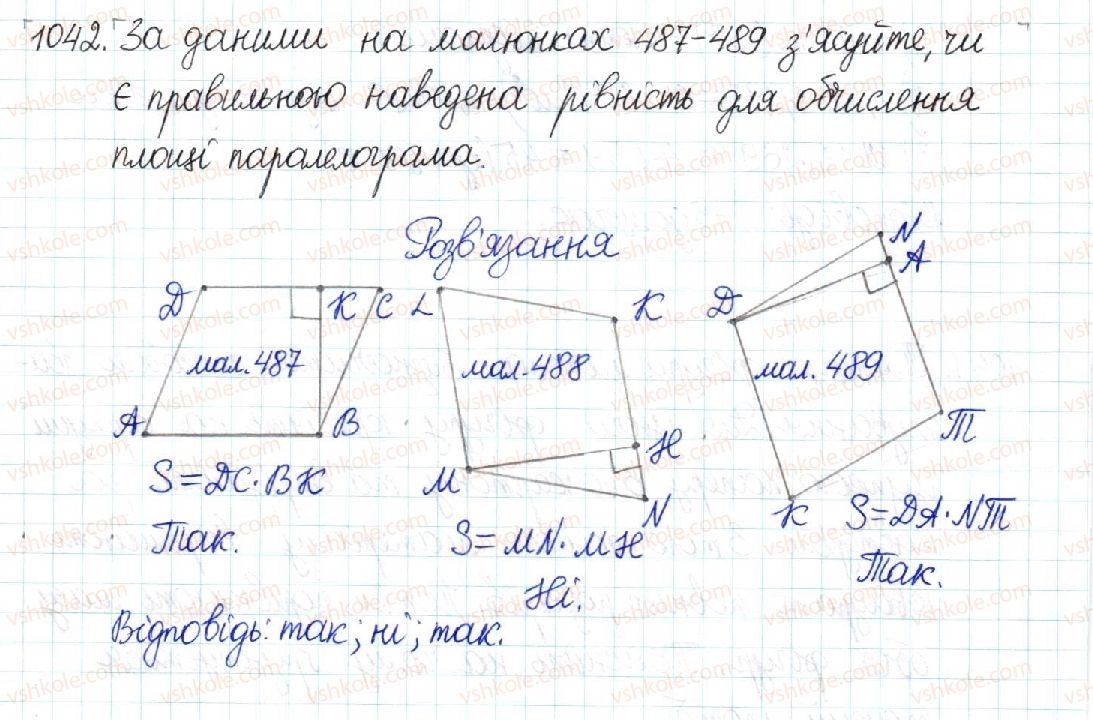 1042. За даними на малюнках 487-489 з'ясуйте, чи
є правильною наведена рівність для обчислення
площі паралелограма.
Розв'язання
Д К С
мал. 487
А В
S = DC · BK
Так.
L К
мал. 488
М Н
N
S = MN · MH
Ні.
N
А
Д
мал. 489
Т
К
S = DA · NT
Так.
Відповідь: так; ні; так.
vshkole.com